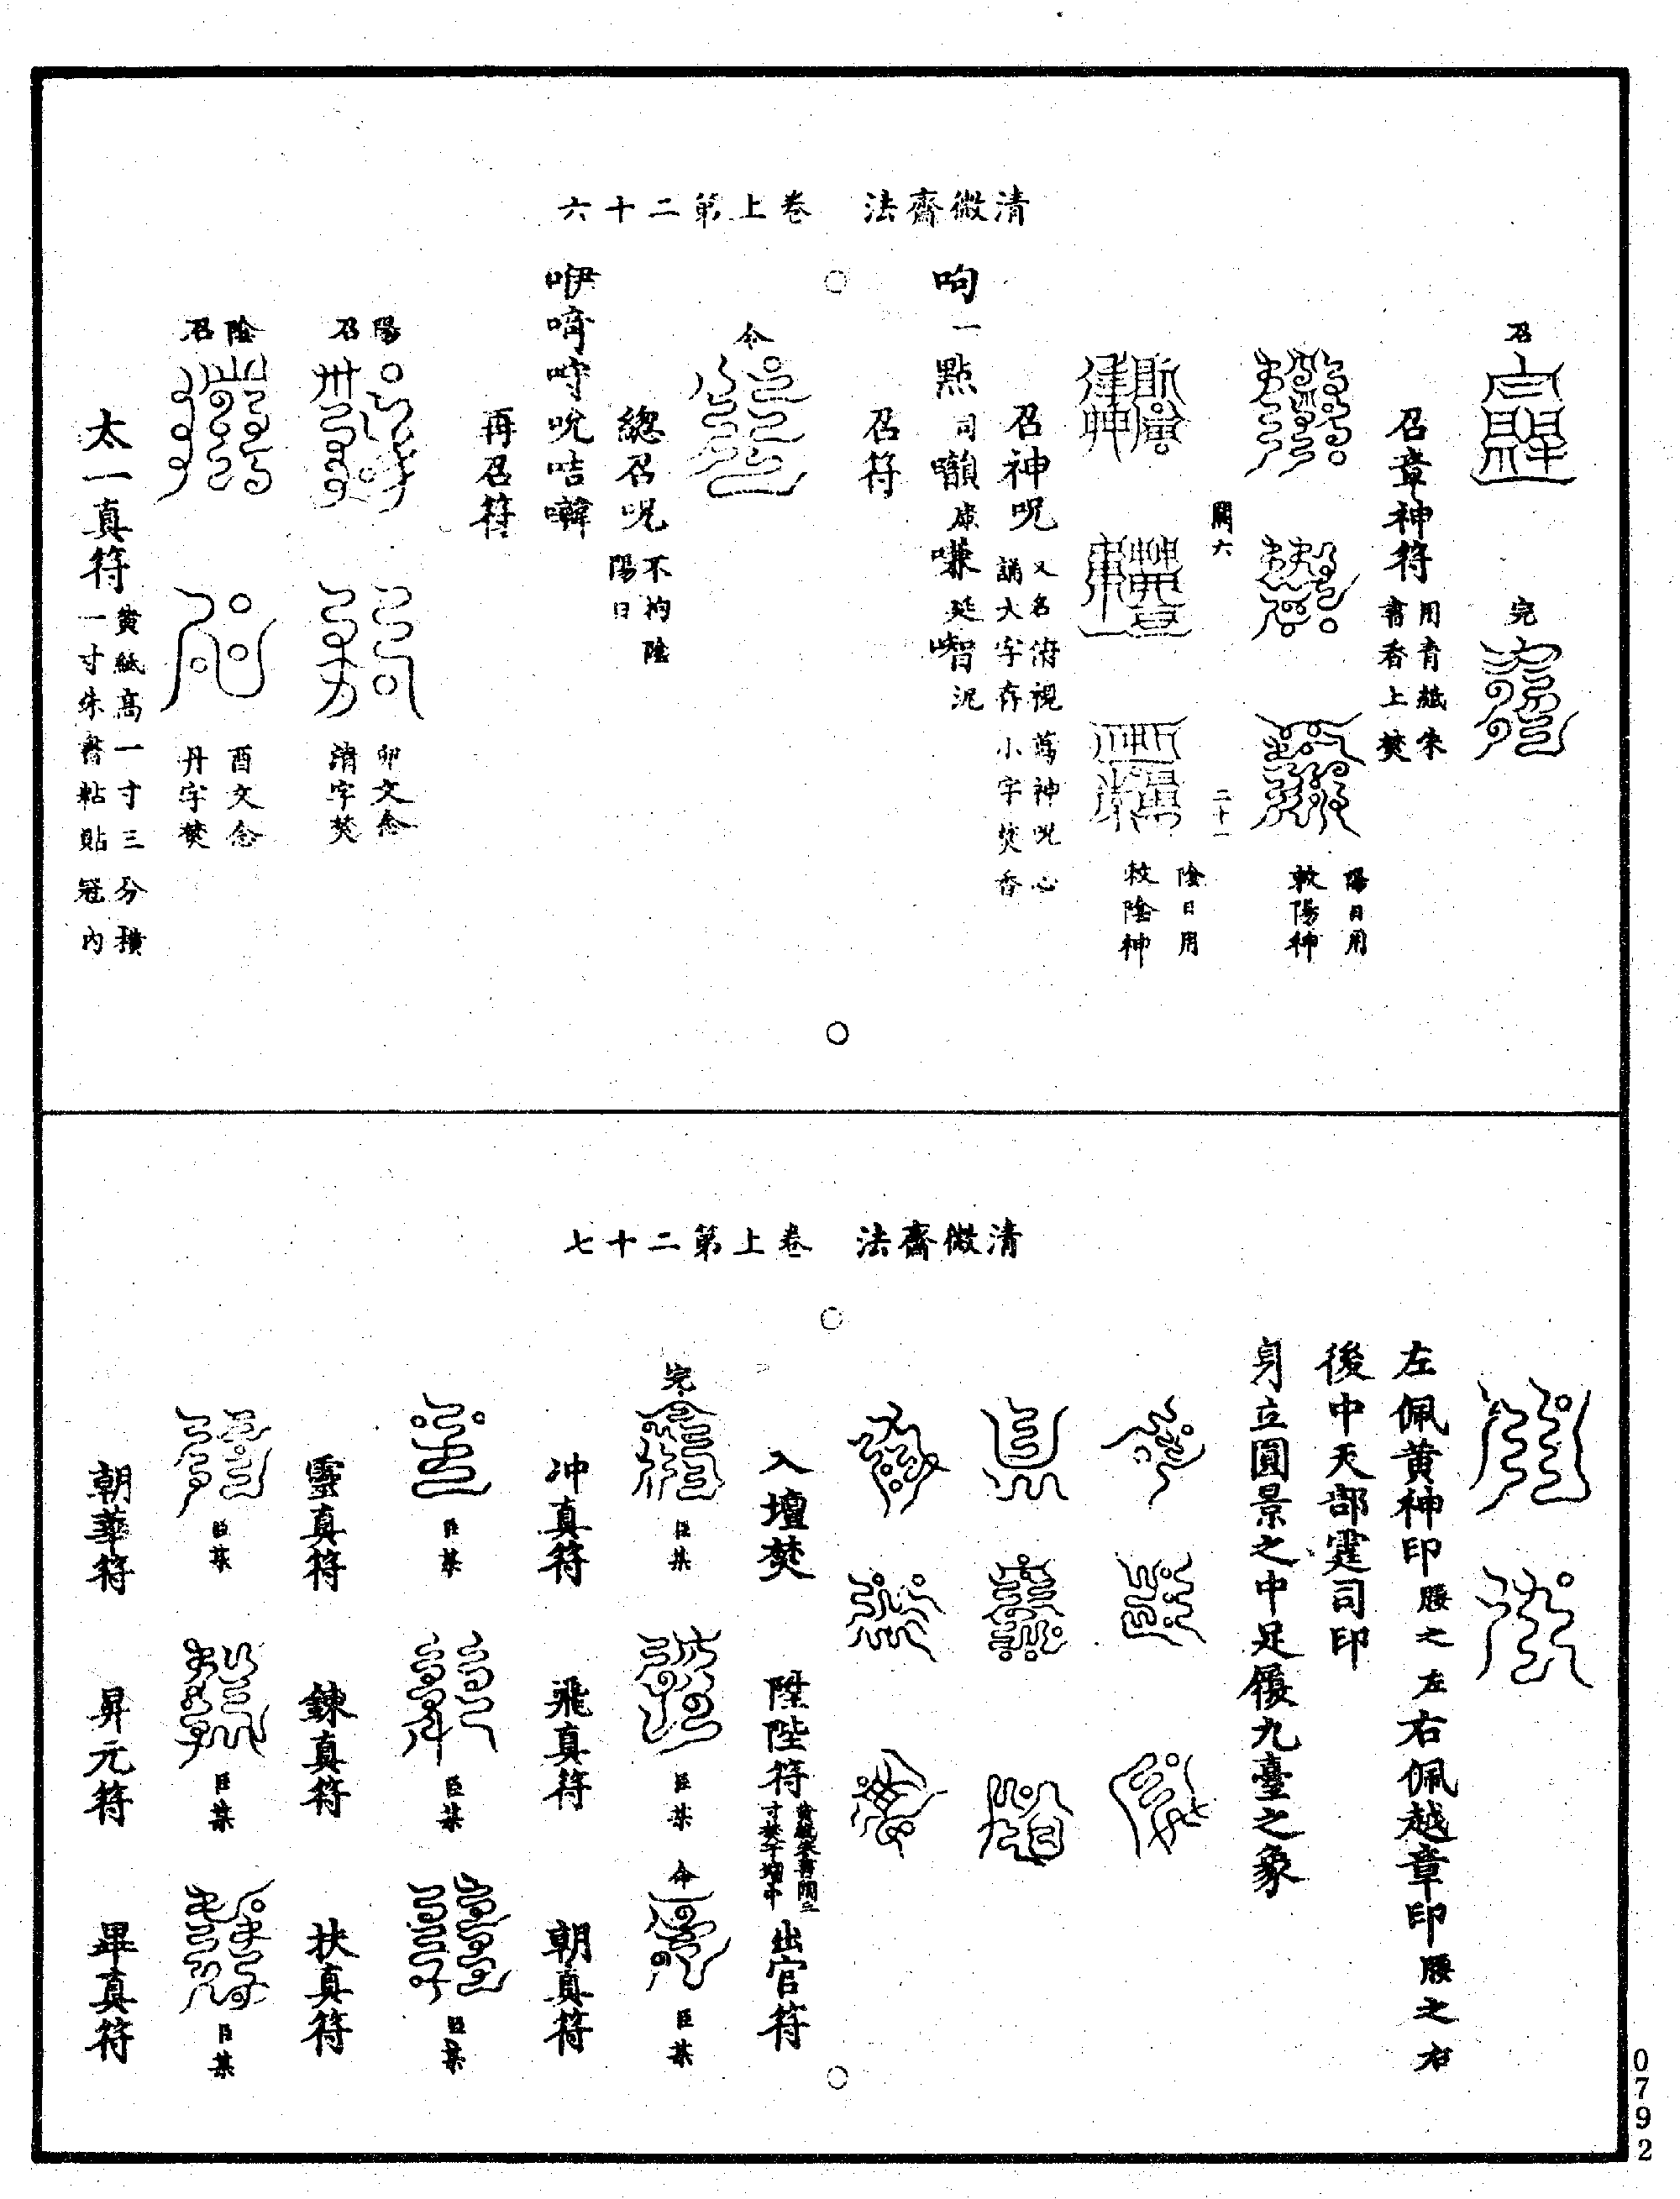 清微齋法　卷上第二十六
召
完
召章神符 用青紙朱書香上焚
陽日用
敕陽神
闕六
二十一
陰日用
敕陰神
召神呪 又名俯視蔫神呪心誦大字存小字焚香
呴一點司囒康嗛延嘈泥
召符
令
總召呪 不拘陰陽日
咿㗨吁吮咭囀
再召符
陽召
卯文念清字焚
陰召
酉文念丹字焚
太一真符 黃紙高一寸三分橫一寸朱書粘貼冠內
清微齋法　卷上第二十七
左佩黃神印腰之左右佩越章印腰之右
後中天部霆司印
身立圓景之中足履九臺之象
入壇焚　陞陛符 　出官符
完
臣某　臣某　令　臣某
冲真符　飛真符　朝真符
臣某　臣某　臣某
靈真符　鍊真符　扶真符
臣某　臣某　臣某
朝華符　昇元符　畢真符
0792